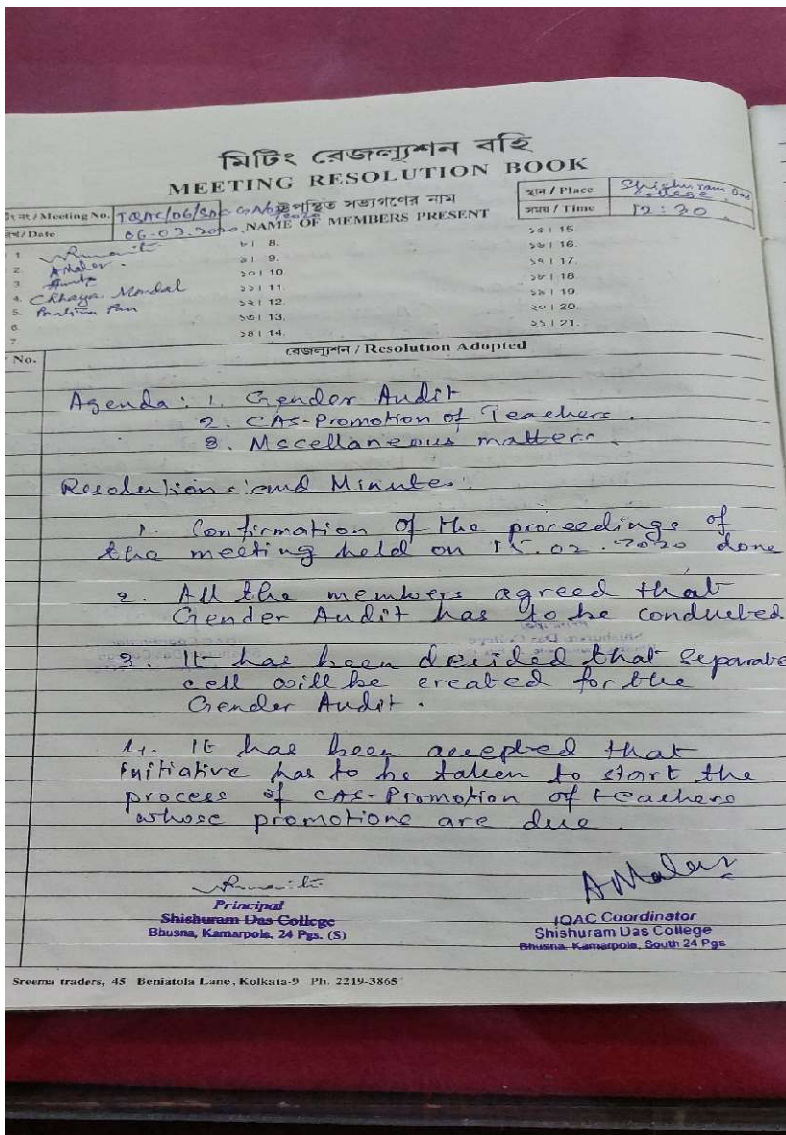 মিটিং রেজল্যুশন বহি
MEETING RESOLUTION BOOK
নং / Meeting No. IQAC/06/SDC উপস্থিত সভ্যগণের নাম স্থান / Place Shishuram Das College
/ Date 06.03.2020 NAME OF MEMBERS PRESENT সময় / Time 12:30
1 ৮। 8. ১৫। 15.
2. AMaler ৯। 9. ১৬। 16.
3 ১০। 10 ১৭। 17.
4. Chhaya Mondal ১১। 11. ১৮। 18
5. ১২। 12. ১৯। 19
6. ১৩। 13. ২০। 20.
7 ১৪। 14. ২১। 21.
No. রেজল্যুশন / Resolution Adopted
Agenda: 1. Gender Audit
2. CAS-Promotion of Teachers.
3. Mscellaneous matters.
Resolutions and Minutes:
1. Confirmation of the proceedings of
the meeting held on 15.02.2020 done
2. All the members agreed that
Gender Audit has to be conducted
3. It has been decided that separate
cell will be created for the
Gender Audit.
4. It has been accepted that
initiative has to be taken to start the
process of CAS-Promotion of teachers
whose promotions are due.
AMaler
Principal
Shishuram Das College
Bhusna, Kamarpole, 24 Pgs. (S)
IQAC Coordinator
Shishuram Das College
Bhusna, Kamarpole, South 24 Pgs
Sreema traders, 45 Beniatola Lane, Kolkata-9 Ph. 2219-3865